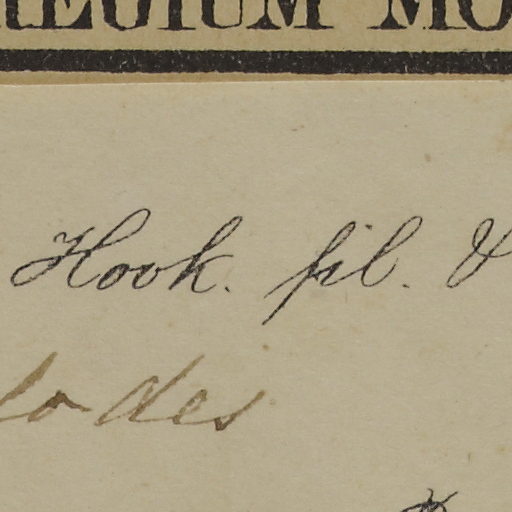 REGIUM MO
Hook. fil. &
lodes